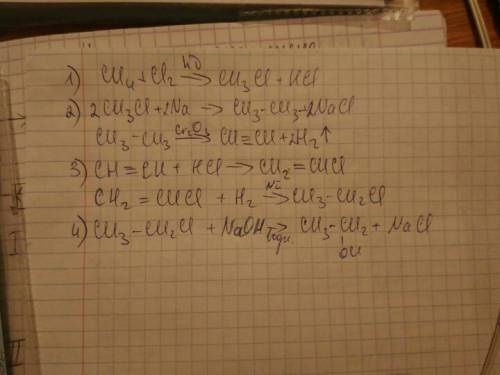 1) CH₄ + Cl₂ —hν→ CH₃Cl + HCl
2) 2CH₃Cl + 2Na → CH₃-CH₃ + 2NaCl
CH₃-CH₃ —Cr₂O₃→ CH≡CH + 2H₂↑
3) CH≡CH + HCl → CH₂=CHCl
CH₂=CHCl + H₂ —Ni→ CH₃-CH₂Cl
4) CH₃-CH₂Cl + NaOH —водн→ CH₃-CH₂ + NaCl
OH